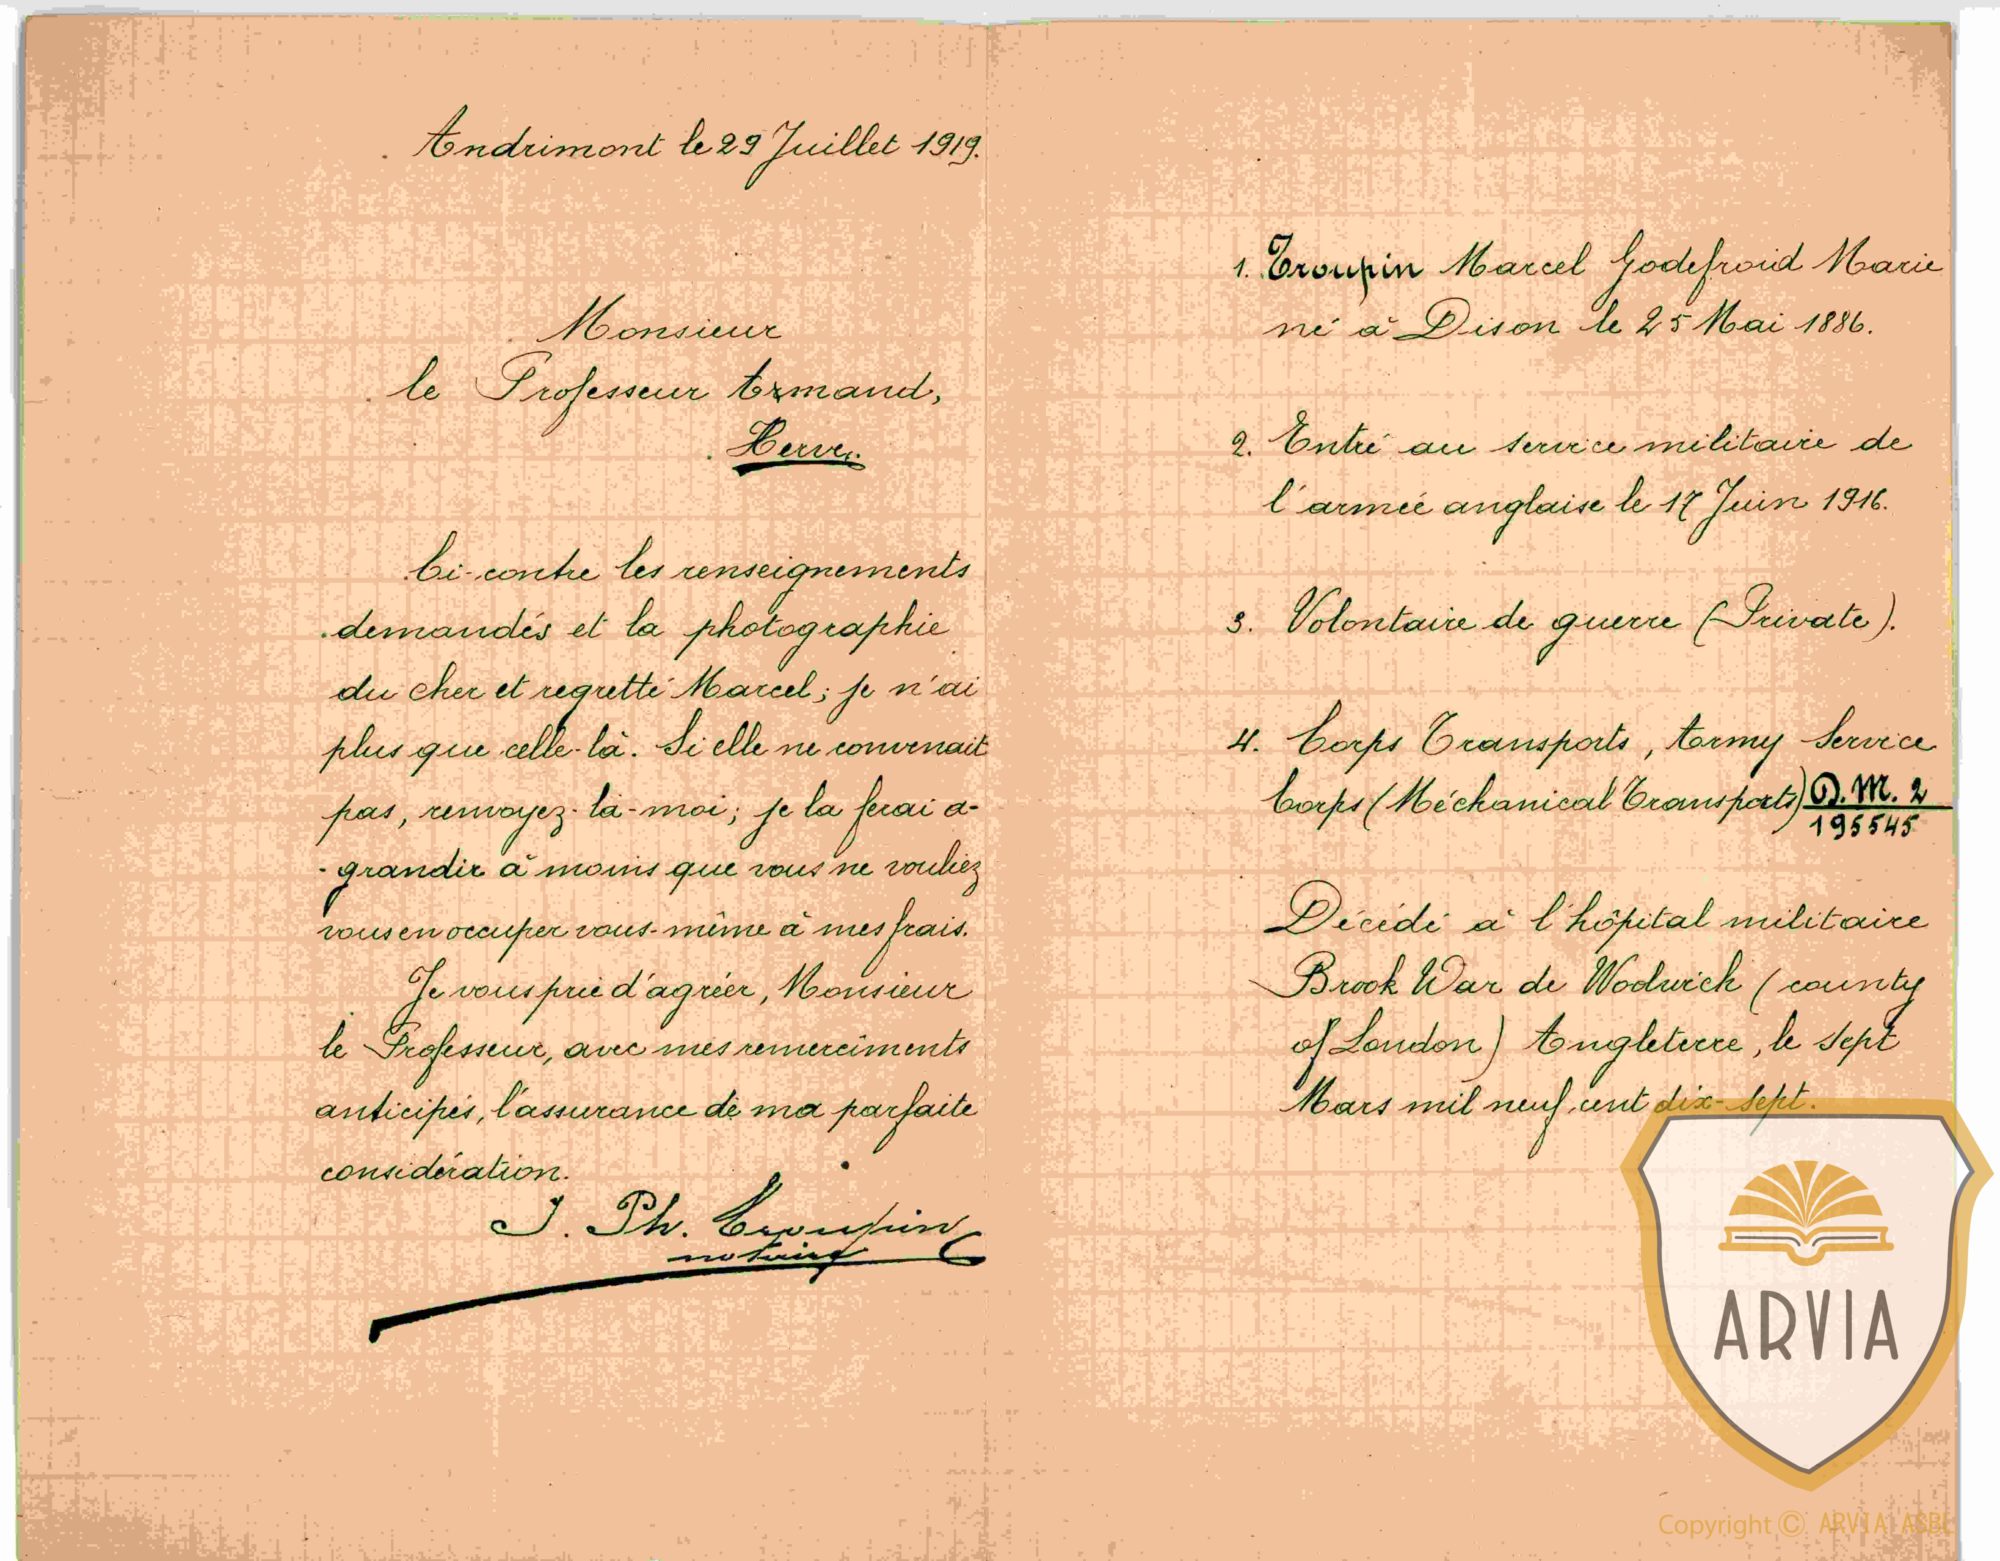 Andrimont le 29 Juillet 1919.
Monsieur
le Professeur Armand,
Herve.
Ci-contre les renseignements
demandés et la photographie
du cher et regretté Marcel; je n'ai
plus que celle-là. Si elle ne convenait
pas, renvoyez-là-moi; je la ferai a-
-grandir à moins que vous ne vouliez
vous en occuper vous-même à mes frais.
Je vous prie d'agréer, Monsieur
le Professeur, avec mes remerciments
anticipés, l'assurance de ma parfaite
considération.
J. Ph. Troupin
notaire
1. Troupin Marcel Godefroid Marie
né à Dison le 25 Mai 1886.
2. Entré au service militaire de
l'armée anglaise le 17 Juin 1916.
3. Volontaire de guerre (Private).
4. Corps Transports, Army Service
Corps (Méchanical Transports) D.M.2
195545
Décédé à l'hôpital militaire
Brook War de Woolwich (county
of London) Angleterre, le sept
Mars mil neuf cent dix-sept.
ARVIA
Copyright © ARVIA ASBL